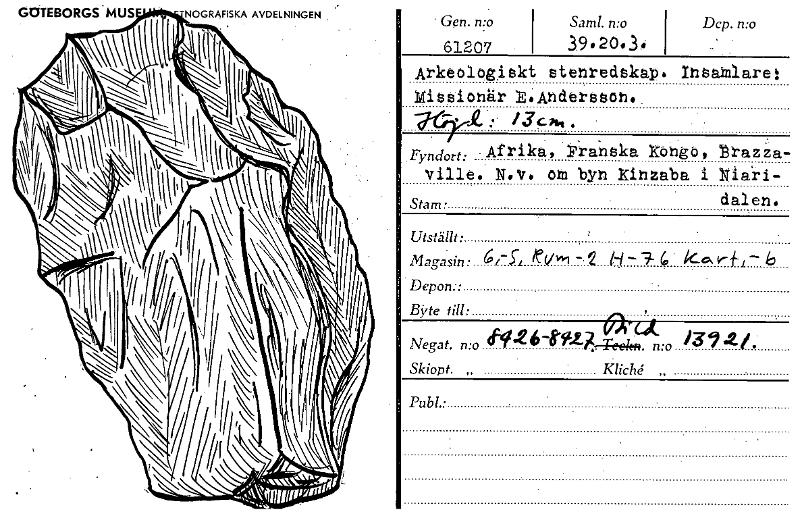 GÖTEBORGS MUSEUM ETNOGRAFISKA AVDELNINGEN
Gen. n:o Saml. n:o Dep. n:o
61207 39.20.3.
Arkeologiskt stenredskap. Insamlare:
Missionär E.Andersson.
Höjd: 13cm.
Fyndort: Afrika, Franska Kongo, Brazza-
ville. N.v. om byn Kinzaba i Niari-
Stam: dalen.
Utställt:
Magasin: 6,-5, Rum-2 H-76 Kart,-b
Depon.:
Byte till:
Bild
Negat. n:o 8426-8427. Teckn. n:o 13921.
Skiopt. „ Kliché „
Publ.: